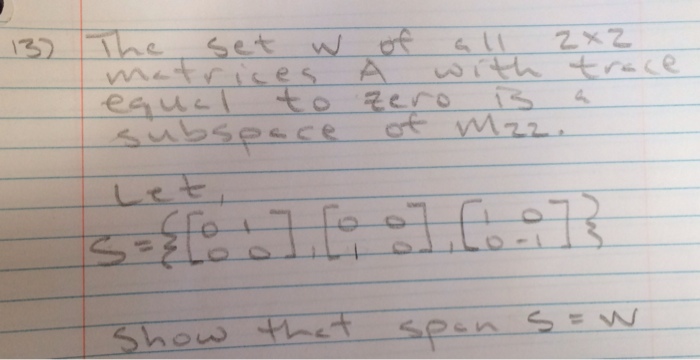 13) The set W of all 2x2
matrices A with trace
equal to zero is a
subspace of M22.
Let,
S={[0 1 0 0],[0 0 1 0],[1 0 0 -1]}
Show that span S = W